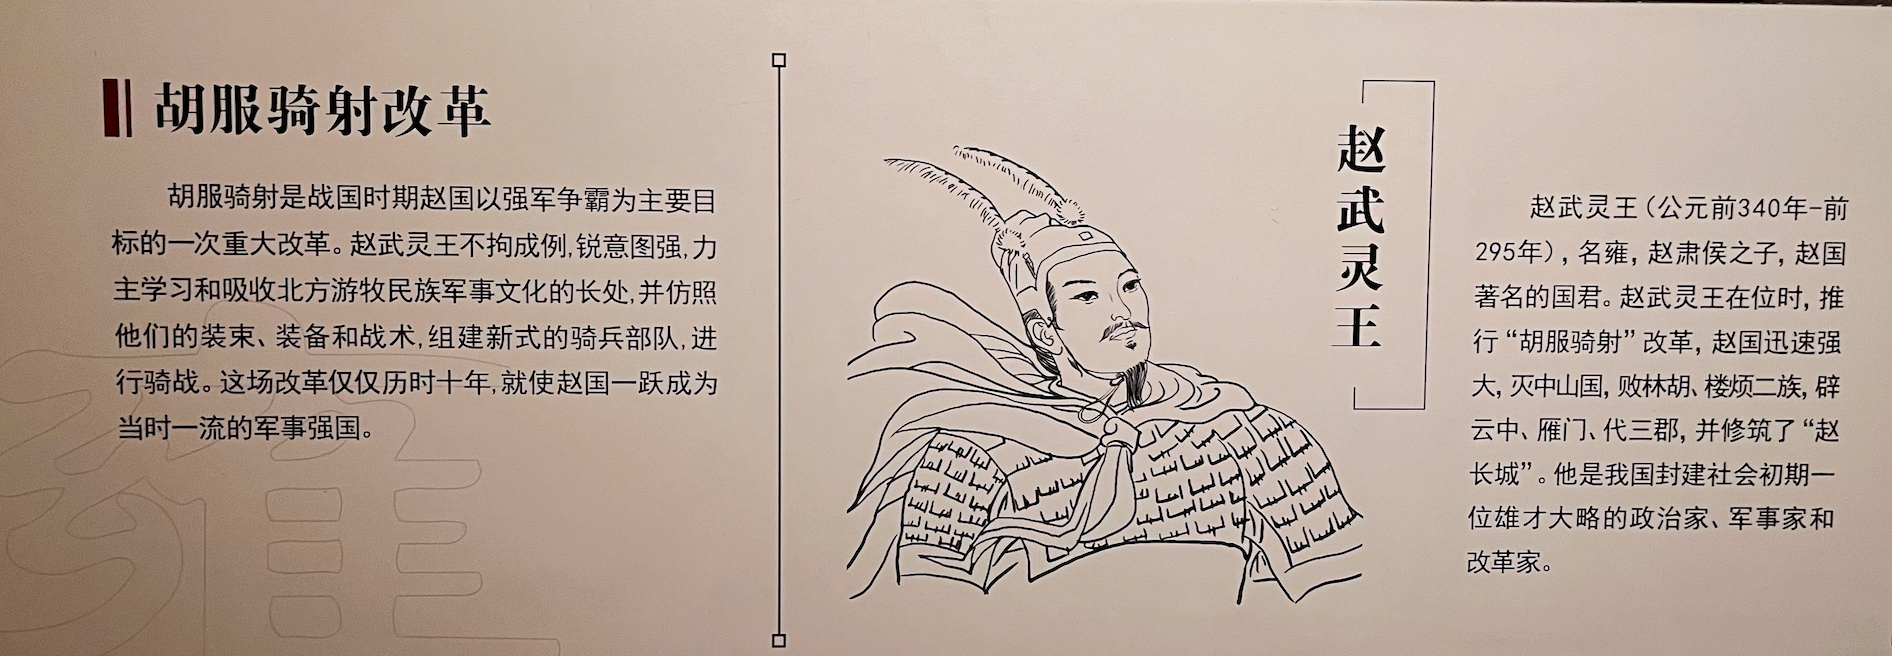 胡服骑射改革
胡服骑射是战国时期赵国以强军争霸为主要目
标的一次重大改革。赵武灵王不拘成例,锐意图强,力
主学习和吸收北方游牧民族军事文化的长处,并仿照
他们的装束、装备和战术,组建新式的骑兵部队,进
行骑战。这场改革仅仅历时十年,就使赵国一跃成为
当时一流的军事强国。
赵武灵王
赵武灵王（公元前340年-前
295年）, 名雍, 赵肃侯之子, 赵国
著名的国君。赵武灵王在位时, 推
行“胡服骑射”改革, 赵国迅速强
大, 灭中山国, 败林胡、楼烦二族, 辟
云中、雁门、代三郡, 并修筑了“赵
长城”。他是我国封建社会初期一
位雄才大略的政治家、军事家和
改革家。